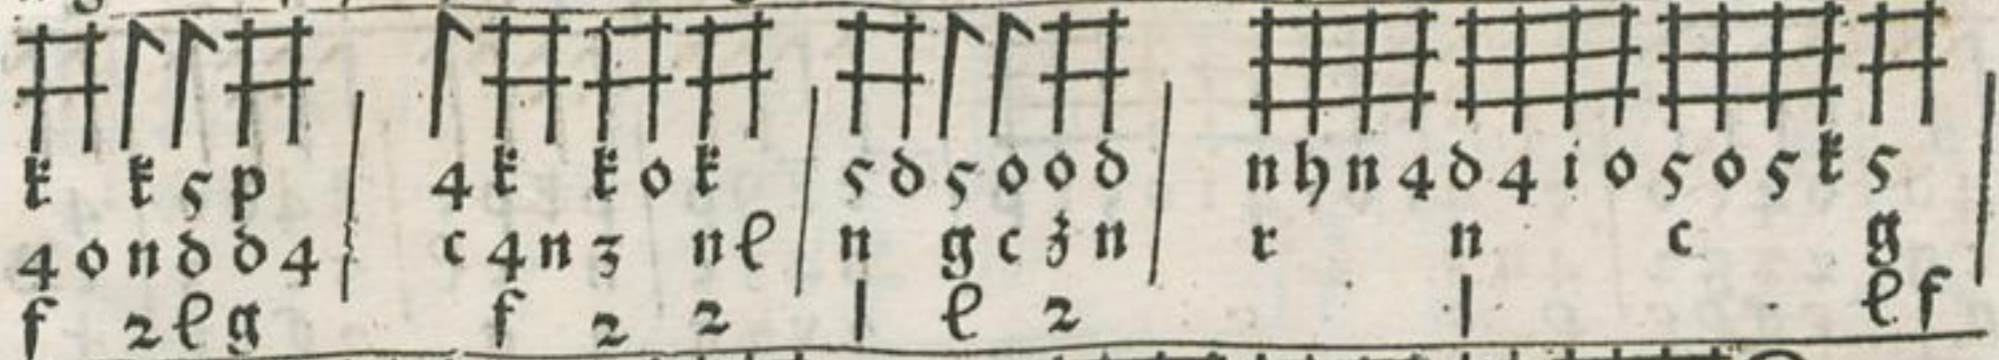 k k 5 p | 4 k k o k | 5 d 5 o o d | n h n 4 d 4 i o 5 o 5 k 5 |
4 o n d d 4 | c 4 n z n l | n g c z n | r n c g
f 2 l g f 2 2 1 l 2 1 l f